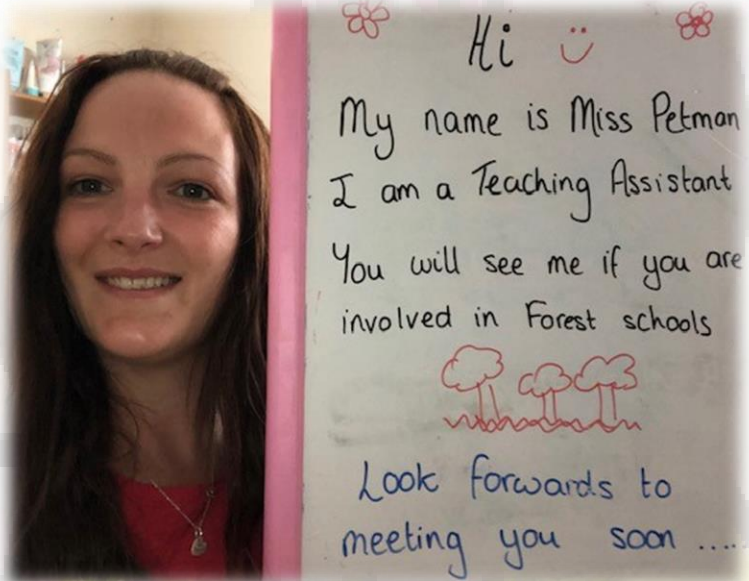 Hi
My name is Miss Petman
I am a Teaching Assistant
You will see me if you are
involved in Forest schools
Look forwards to
meeting you soon .....